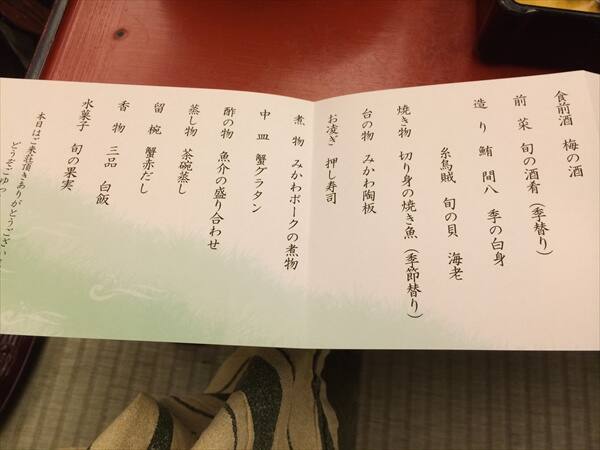 食前酒　梅の酒
前　菜　旬の酒肴（季替り）
造　り　鮪　間八　季の白身
糸烏賊　旬の貝　海老
焼き物　切り身の焼き魚（季節替り）
台の物　みかわ陶板
お凌ぎ　押し寿司
煮　物　みかわポークの煮物
中　皿　蟹グラタン
酢の物　魚介の盛り合わせ
蒸し物　茶碗蒸し
留　椀　蟹赤だし
香　物　三品　白飯
水菓子　旬の果実
本日はご来荘頂きありがとうござい
どうぞごゆっ